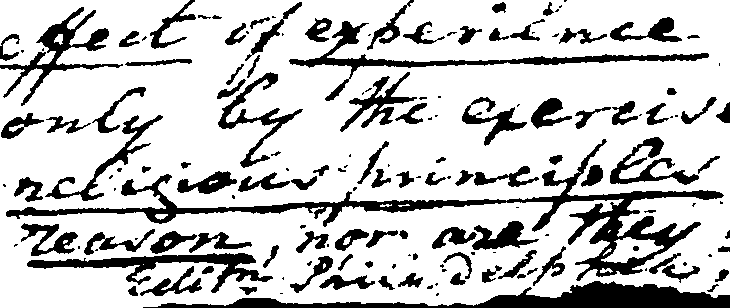 effect of experience
only by the exercise
religious principles
reason, nor are they
Editn. Philadelphia,